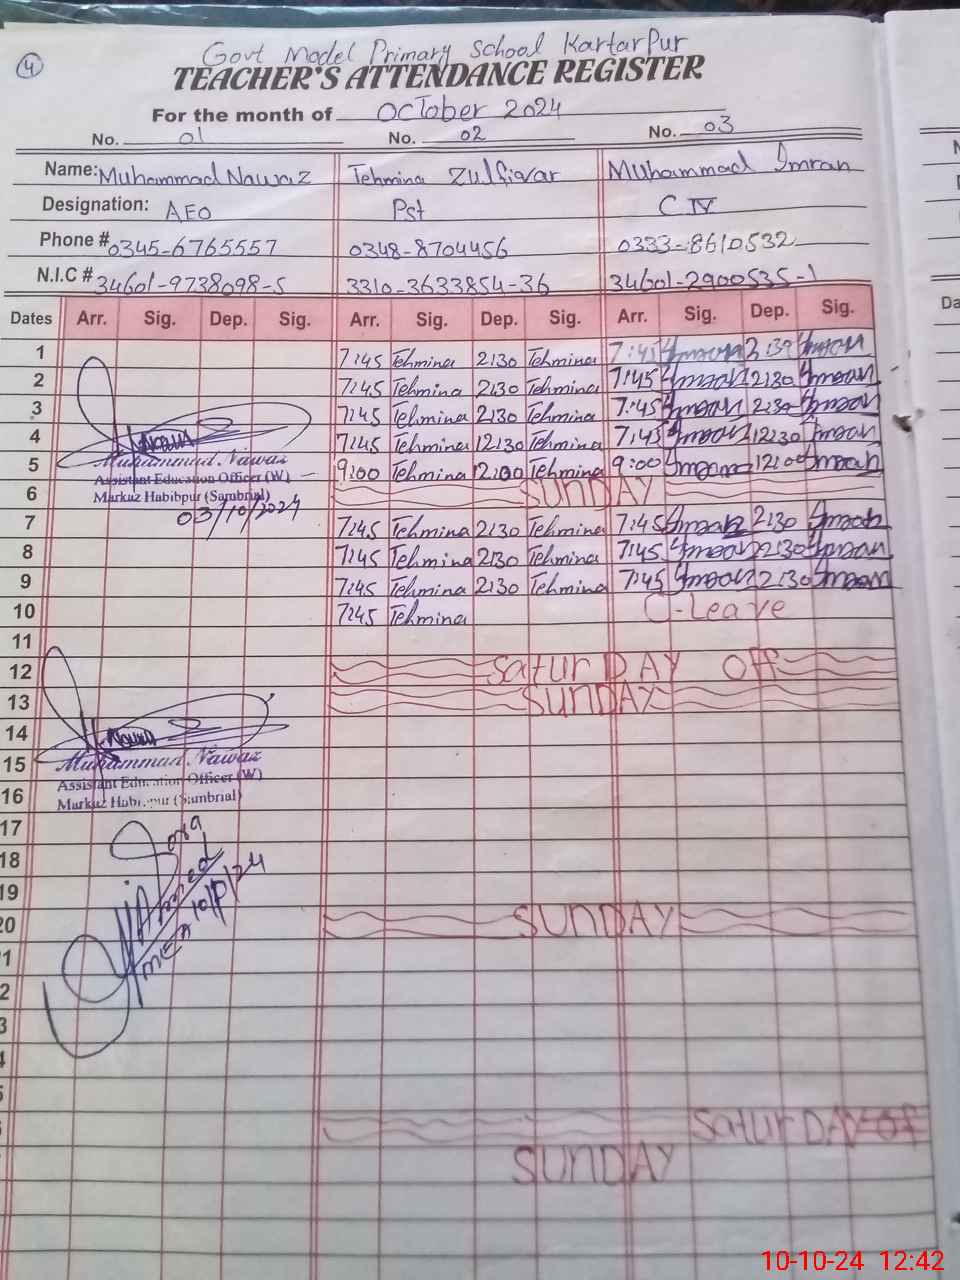 4
Govt Model Primary School Kartarpur
TEACHER'S ATTENDANCE REGISTER
For the month of October 2024
No. 01 No. 02 No. 03
Name: Muhammad Nawaz Tehmina Zulfiqar Muhammad Imran
Designation: AEO Pst C IV
Phone # 0345-6765557 0348-8704456 0333-8610532
N.I.C # 34601-9738098-5 3310-3633854-36 34601-2900535-1
Dates Arr. Sig. Dep. Sig. Arr. Sig. Dep. Sig. Arr. Sig. Dep. Sig.
1 7:45 Tehmina 2:30 Tehmina 7:45 Imran 2:30 Imran
2 7:45 Tehmina 2:30 Tehmina 7:45 Imran 2:30 Imran
3 7:45 Tehmina 2:30 Tehmina 7:45 Imran 2:30 Imran
4 7:45 Tehmina 12:30 Tehmina 7:45 Imran 12:30 Imran
5 9:00 Tehmina 12:00 Tehmina 9:00 Imran 12:00 Imran
Nawaz
Muhammad Nawaz
Assistant Education Officer (W)
Markaz Habibpur (Sambrial)
03/10/2024
6 SUNDAY
7 7:45 Tehmina 2:30 Tehmina 7:45 Imran 2:30 Imran
8 7:45 Tehmina 2:30 Tehmina 7:45 Imran 2:30 Imran
9 7:45 Tehmina 2:30 Tehmina 7:45 Imran 2:30 Imran
10 7:45 Tehmina C-Leave
11
12 SaturDAY off
13 SUNDAY
14
Nawaz
15
Muhammad Nawaz
Assistant Education Officer (W)
16
Markaz Habibpur (Sambrial)
17
18
19
Ahmed
MEA 10/10/24
20 SUNDAY
SaturDAY of
SUNDAY
10-10-24 12:42